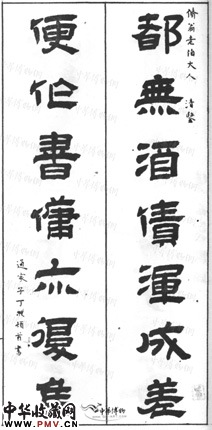 翁老伯大人
清鑒
都無酒債渾成差
便作書傭亦復
通家子丁頓首書
中华收藏网
www.PMV.cn
中華博物